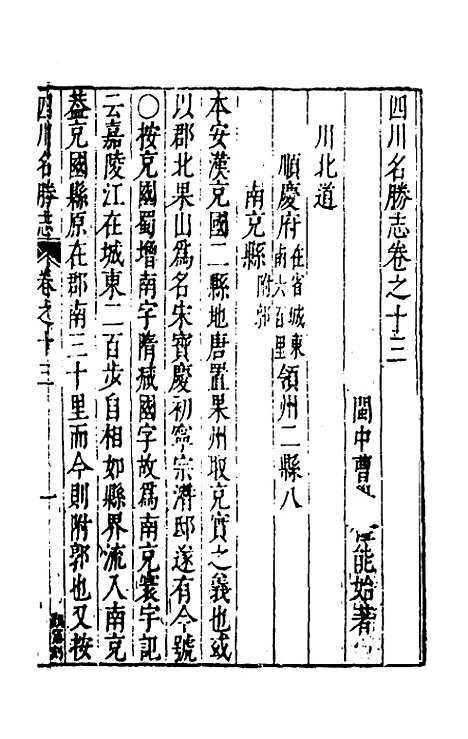 四川名勝志卷之十三
閩中曹 能始著
川北道
順慶府在省城東南六百里領州二縣八
南充縣附郭
本安漢充國二縣地唐置果州取充實之義也或
以郡北果山爲名宋寶慶初寧宗潛邸遂有今號
○按充國蜀增南字隋减國字故爲南充寰宇記
云嘉陵江在城東二百步自相如縣界流入南充
葢充國縣原在郡南三十里而今則附郭也又按
四川名勝志 卷之十三 一